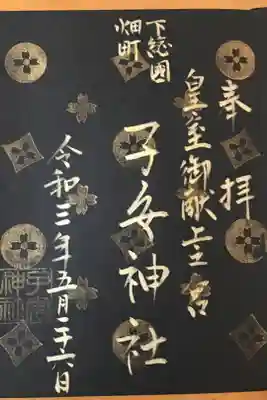 奉拝
皇室御献上之宮
下総國
畑町
子安神社
令和三年五月二十六日
子安
神社